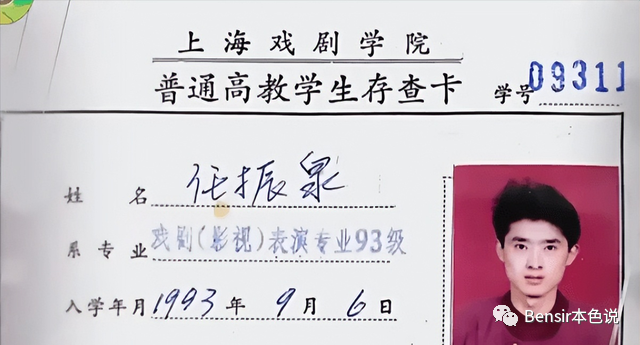 上海戏剧学院
普通高教学生存查卡
学号 09311
姓名 任振泉
系专业 戏剧(影视)表演专业93级
入学年月 1993年9月6日
Bensir本色说